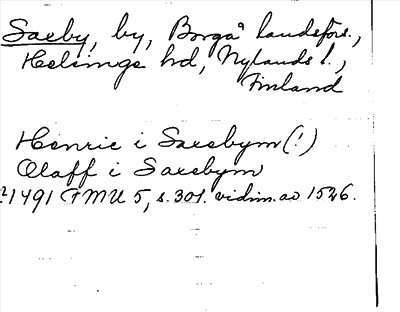 Saeby, by, Borgå landsförs.,
Helsinge hd, Nylands l.,
Finland
Henric i Saexbym (!)
Olaff i Saexbym
1491 FMU 5, s. 301. vidim. av 1526.